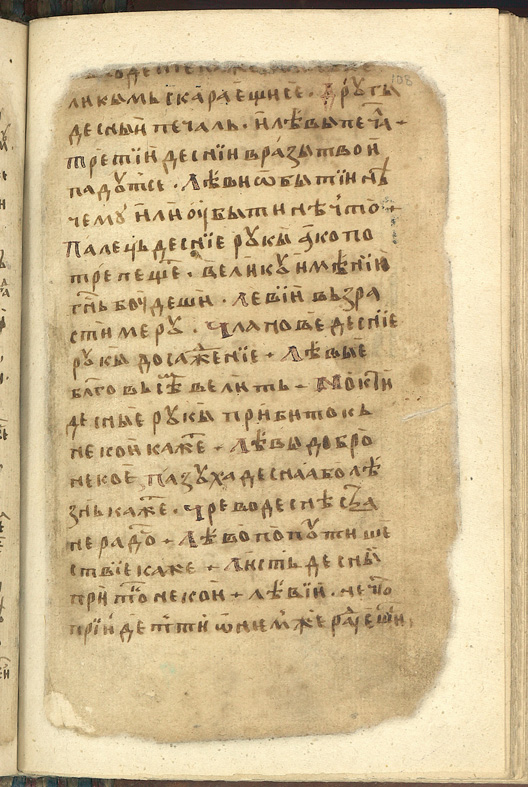 108
ликымь скараешисе · Дрꙋгы
десный печаль · и лѣвы печа +
третїи деснїи вразы твои
падꙋтсе · Лѣви ѡбытїи нѣ
чемꙋ или оубыти нѣчто +
Палець деснїе рꙋкы ꙗко по
трепеще · великꙋ имѣнїю
гнь боудеши · левїи възра
сти мерꙋ · Чланове деснїе
рꙋкы досаженїе + Лѣвые
благовѣ велить + Мокти
десные рꙋкы прибитокь
некои каже + Лѣвы добро
некое пазꙋха десна а болѣ
знь каже · Чрево деснѣ
не радо + Лѣво по пꙋти ше
ствїе каже + Листь десны
при некои + лѣвїи · нечто
прїидети ѡ нем же